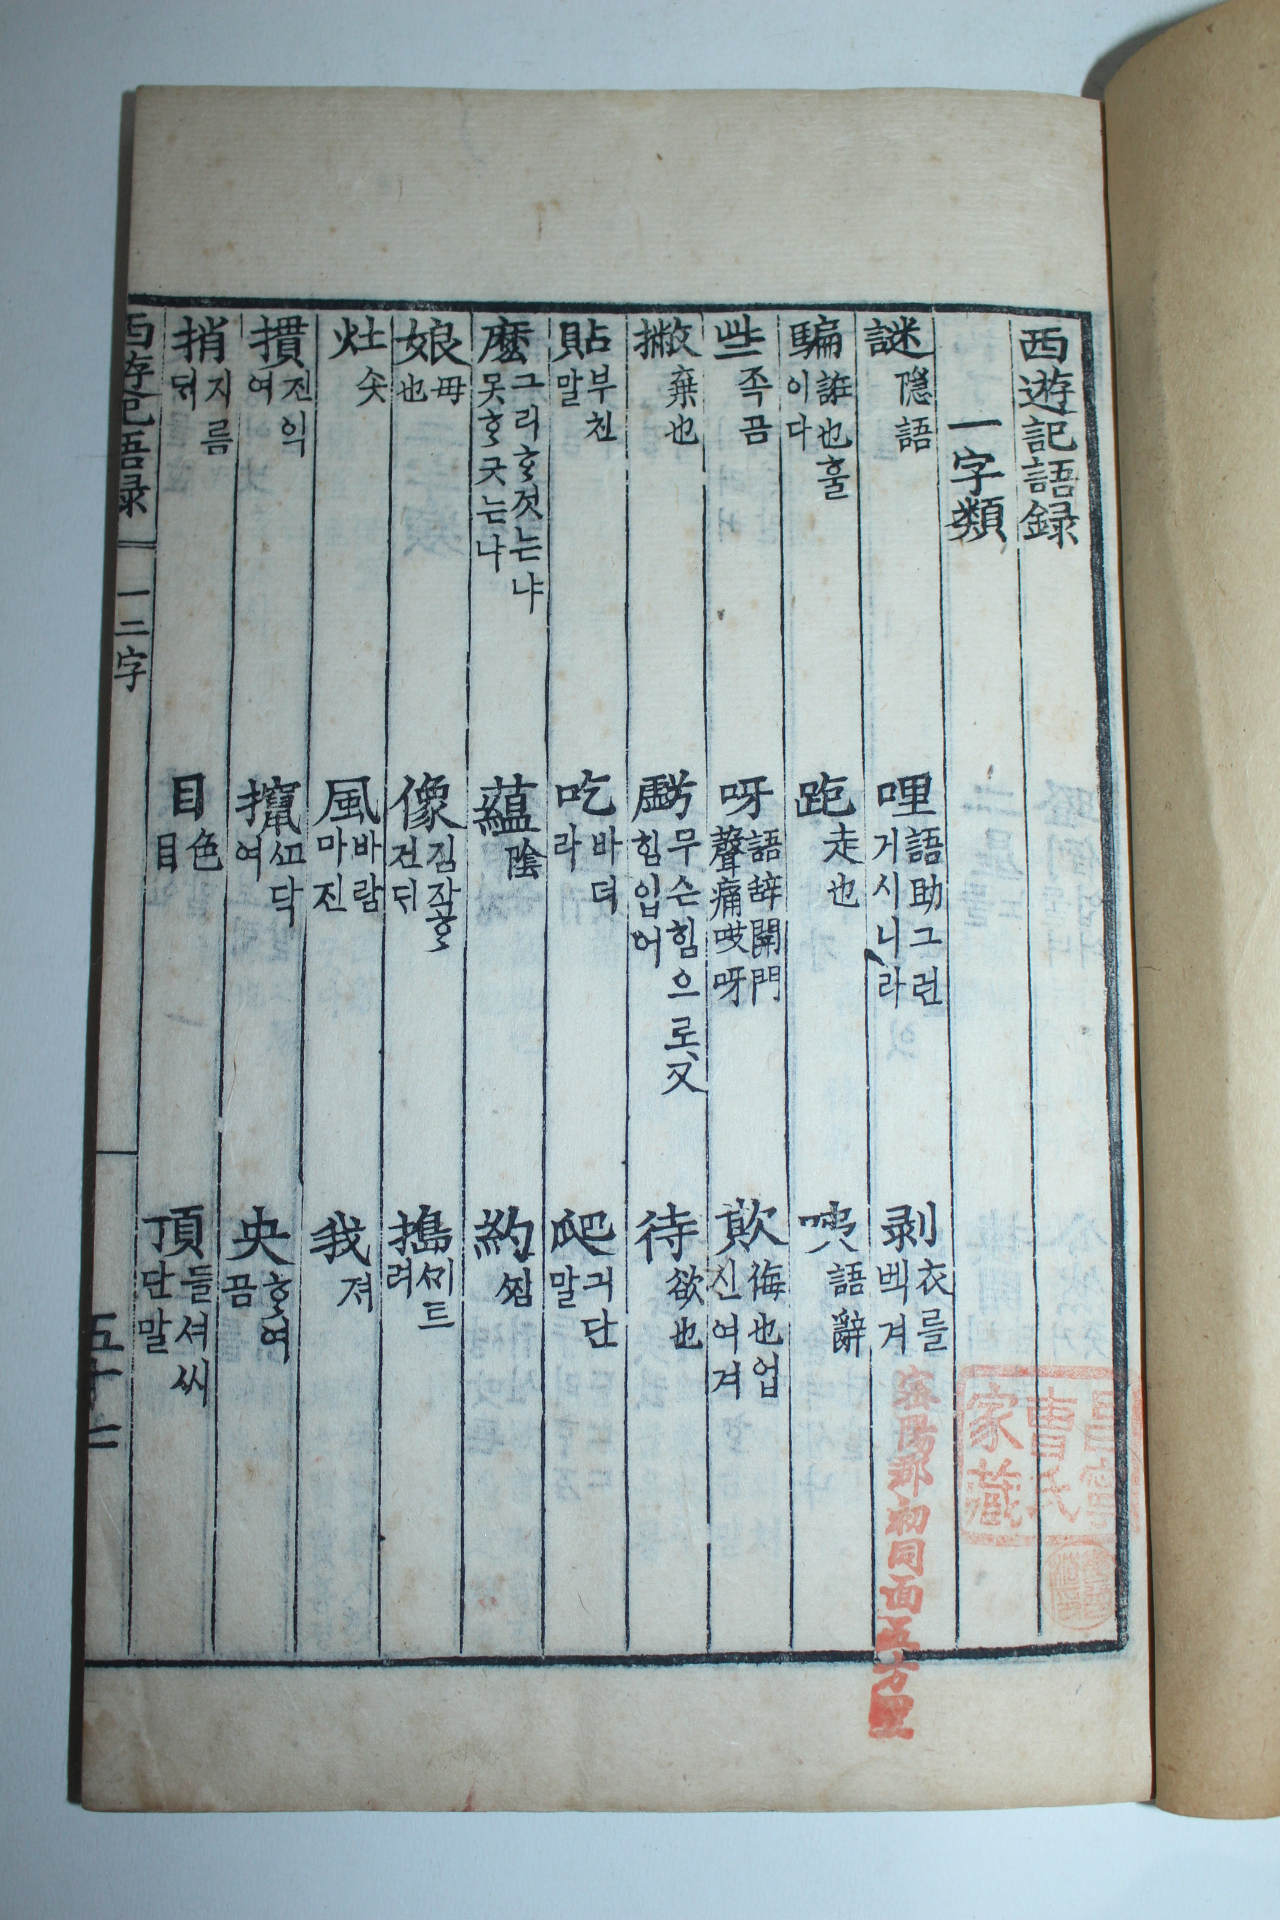 西遊記語録
一字類
謎 隠語
哩 語助그런거시니라
剥 衣를벡겨
騙 誑也훌이다
跑 走也
咦 語辭
些 족곰
呀 語辞開門聲痛哎呀
欺 侮也업신여겨
撇 棄也
무슨힘으로又힘입어
待 欲也
貼 부친말
吃 바더라
爬 긔단말
麽 그리ᄒᆞ것는냐못ᄒᆞ긋는냐
蘊 陰
約
娘 母也
像 짐작ᄒᆞ건듸
搗
灶 솟
風 바람마진
我 져
摜 진익여
攛
央 ᄒᆞ여곰
捎 지름
目 色目
頂 들셔ᄊᆞ단말
西遊記語録
一二字
五十七
家藏
曹氏
密陽郡初同面五方里